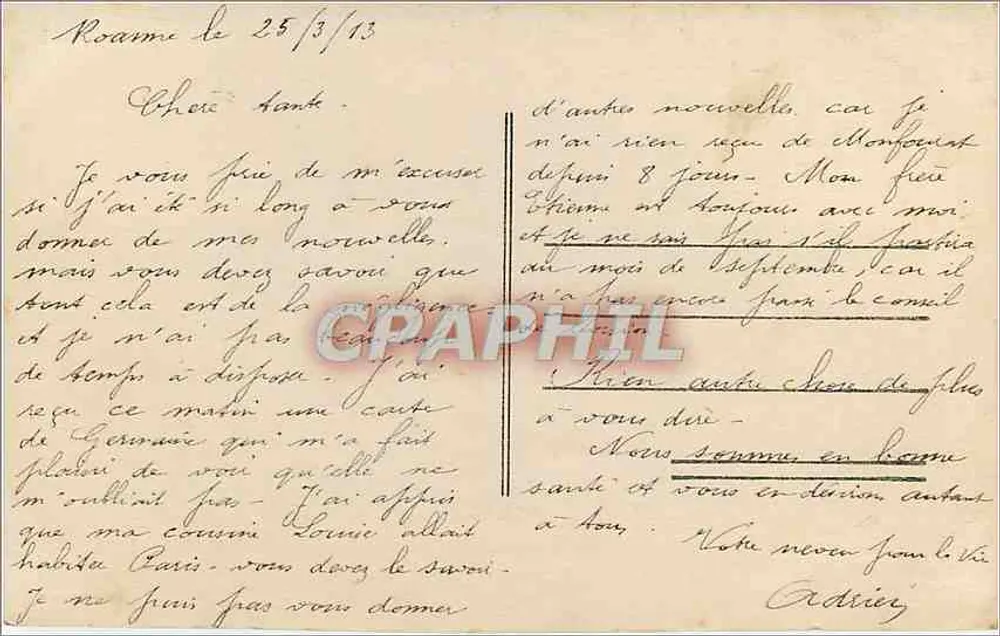 Roanne le 25/3/13
Cheré tante.
Je vous prie de m'excuser
si j'ai été si long à vous
donner de mes nouvelles.
mais vous devez savoir que
tout cela est de la négligence.
et je n'ai pas beaucoup
de temps à disposer. J'ai
reçu ce matin une carte
de Germaine qui m'a fait
plaisir de voir qu'elle ne
m'oubliait pas - J'ai appris
que ma cousine Louise allait
habiter Paris - vous devez le savoir -
Je ne puis pas vous donner
d'autres nouvelles. car je
n'ai rien reçu de
depuis 8 jours - Mon frère
Etienne est toujours avec moi
et je ne sais pas s'il partira
au mois de septembre, car il
n'a pas encore passé le conseil
de
Rien autre chose de plus
à vous dire -
Nous sommes en bonne
santé et vous en désirons autant
à tous.
Votre neveu pour la vie
Adrien
CPAPHIL